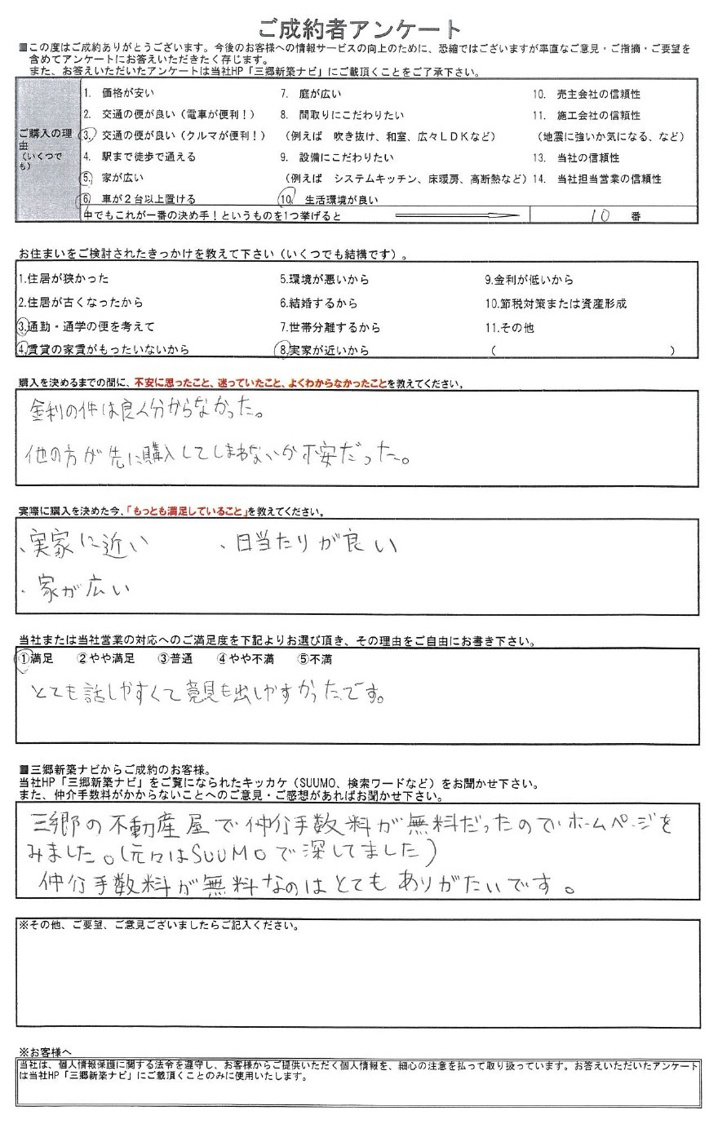 ご成約者アンケート
■この度はご成約ありがとうございます。今後のお客様への情報サービスの向上のために、恐縮ではございますが率直なご意見・ご指摘・ご要望を
含めてアンケートにお答えいただきたく存じます。
また、お答えいただいたアンケートは当社HP「三郷新築ナビ」にご載頂くことをご了承下さい。
ご購入の理由
(いくつでも)
1. 価格が安い 7. 庭が広い 10. 売主会社の信頼性
2. 交通の便が良い(電車が便利!) 8. 間取りにこだわりたい 11. 施工会社の信頼性
3. 交通の便が良い(クルマが便利!) (例えば 吹き抜け、和室、広々LDKなど) (地震に強いか気になる、など)
4. 駅まで徒歩で通える 9. 設備にこだわりたい 13. 当社の信頼性
5. 家が広い (例えば システムキッチン、床暖房、高断熱など) 14. 当社担当営業の信頼性
6 車が2台以上置ける 10. 生活環境が良い
中でもこれが一番の決め手!というものを1つ挙げると 10 番
お住まいをご検討されたきっかけを教えて下さい(いくつでも結構です)。
1.住居が狭かった 5.環境が悪いから 9.金利が低いから
2.住居が古くなったから 6.結婚するから 10.節税対策または資産形成
3.通勤・通学の便を考えて 7.世帯分離するから 11.その他
4.賃貸の家賃がもったいないから 8.実家が近いから ( )
購入を決めるまでの間に、不安に思ったこと、迷っていたこと、よくわからなかったことを教えてください。
金利の件は良く分からなかった。
他の方が先に購入してしまわないか不安だった。
実際に購入を決めた今、「もっとも満足していること」を教えてください。
・実家に近い ・日当たりが良い
・家が広い
当社または当社営業の対応へのご満足度を下記よりお選び頂き、その理由をご自由にお書き下さい。
①満足 ②やや満足 ③普通 ④やや不満 ⑤不満
とても話しやすくて意見も出しやすかったです。
■三郷新築ナビからご成約のお客様。
当社HP「三郷新築ナビ」をご覧になられたキッカケ(SUUMO、検索ワードなど)をお聞かせ下さい。
また、仲介手数料がかからないことへのご意見・ご感想があればお聞かせ下さい。
三郷の不動産屋で仲介手数料が無料だったのでホームページを
みました。(元々はSUUMOで深してました)
仲介手数料が無料なのはとてもありがたいです。
※その他、ご要望、ご意見ございましたらご記入ください。
※お客様へ
当社は、個人情報保護に関する法令を遵守し、お客様からご提供いただく個人情報を、細心の注意を払って取り扱っています。お答えいただいたアンケート
は当社HP「三郷新築ナビ」にご載頂くことのみに使用いたします。